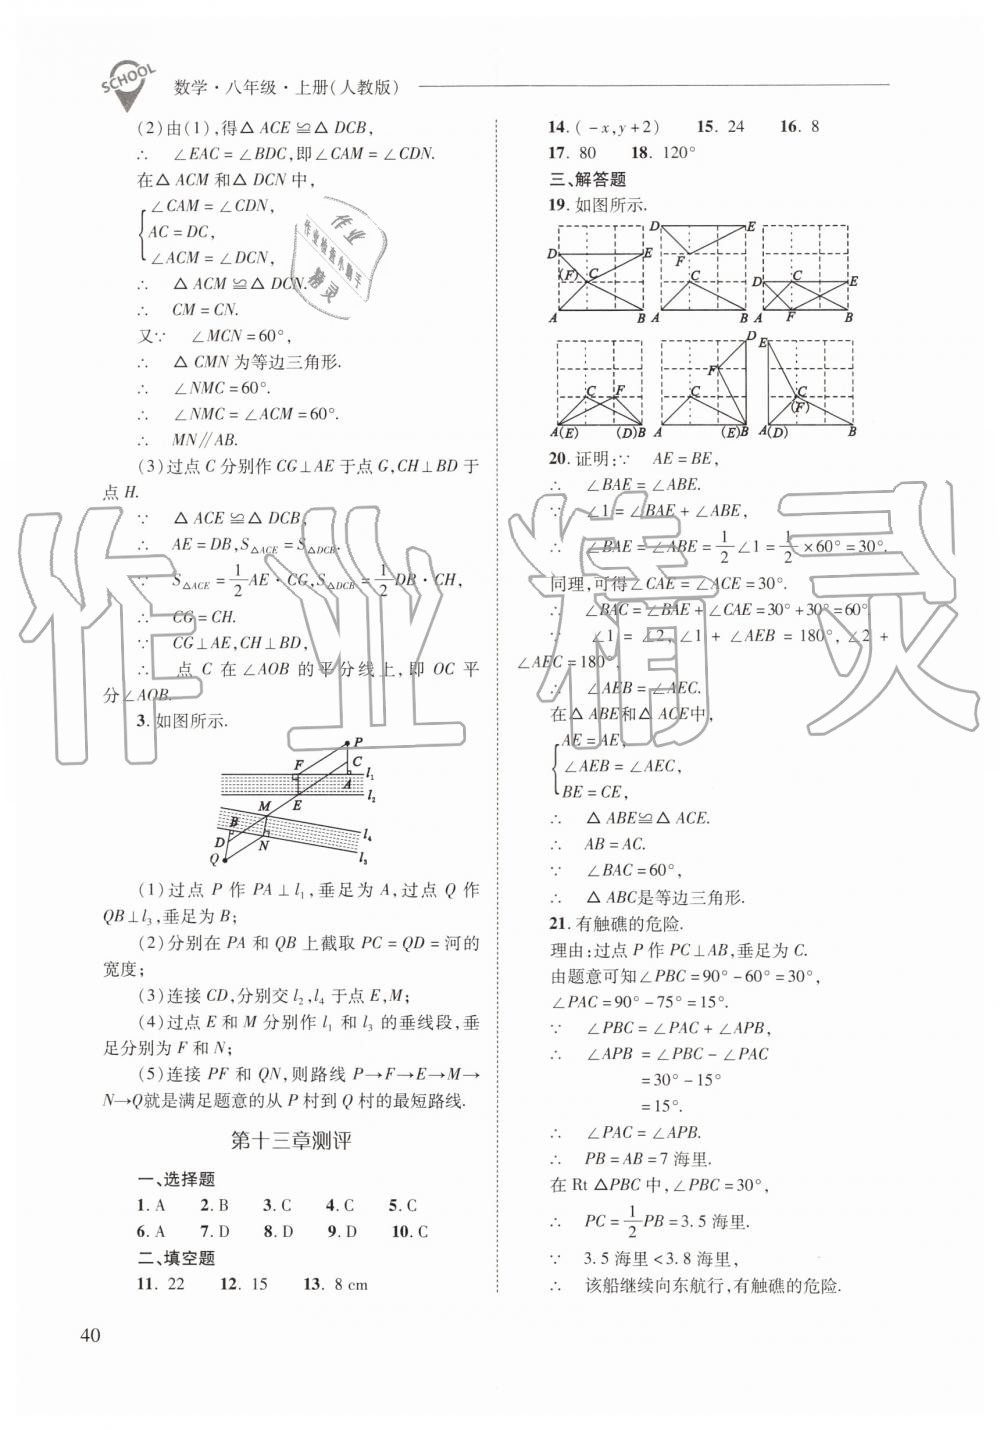 SCHOOL
数学·八年级·上册(人教版)
(2)由(1),得△ ACE ≌△ DCB,
∴ ∠EAC = ∠BDC,即∠CAM = ∠CDN.
在△ ACM 和△ DCN 中,
∠CAM = ∠CDN,
AC = DC,
∠ACM = ∠DCN,
∴ △ ACM ≌△ DCN.
∴ CM = CN.
又∵ ∠MCN = 60°,
∴ △ CMN 为等边三角形.
∴ ∠NMC = 60°.
∴ ∠NMC = ∠ACM = 60°.
∴ MN∥AB.
(3)过点 C 分别作 CG⊥AE 于点 G,CH⊥BD 于
点 H.
∵ △ ACE ≌△ DCB,
∴ AE = DB,S△ACE = S△DCB.
∵ S△ACE = 1/2 AE·CG,S△DCB = 1/2 DB·CH,
∴ CG = CH.
∵ CG⊥AE,CH⊥BD,
∴ 点 C 在∠AOB 的平分线上,即 OC 平
分∠AOB.
3. 如图所示.
P
F C
A l₁
E l₂
M
B l₄
D N l₃
Q
(1)过点 P 作 PA⊥l₁,垂足为 A,过点 Q 作
QB⊥l₃,垂足为 B;
(2)分别在 PA 和 QB 上截取 PC = QD = 河的
宽度;
(3)连接 CD,分别交 l₂,l₄ 于点 E,M;
(4)过点 E 和 M 分别作 l₁ 和 l₃ 的垂线段,垂
足分别为 F 和 N;
(5)连接 PF 和 QN,则路线 P→F→E→M→
N→Q就是满足题意的从 P 村到 Q 村的最短路线.
第十三章测评
一、选择题
1. A 2. B 3. C 4. C 5. C
6. A 7. D 8. D 9. D 10. C
二、填空题
11. 22 12. 15 13. 8 cm
14. (-x,y+2) 15. 24 16. 8
17. 80 18. 120°
三、解答题
19. 如图所示.
D E D E
(F) C F C D C E
A B A B A F B
D E
F
C F C C
(F)
A(E) (D)B A (E)B A(D) B
20. 证明:∵ AE = BE,
∴ ∠BAE = ∠ABE.
∵ ∠1 = ∠BAE + ∠ABE,
∴ ∠BAE = ∠ABE = 1/2 ∠1 = 1/2 ×60° = 30°.
同理,可得∠CAE = ∠ACE = 30°.
∴ ∠BAC = ∠BAE + ∠CAE = 30° + 30° = 60°.
∵ ∠1 = ∠2,∠1 + ∠AEB = 180°,∠2 +
∠AEC = 180°,
∴ ∠AEB = ∠AEC.
在△ ABE和△ ACE中,
AE = AE,
∠AEB = ∠AEC,
BE = CE,
∴ △ ABE≌△ ACE.
∴ AB = AC.
∵ ∠BAC = 60°,
∴ △ ABC是等边三角形.
21. 有触礁的危险.
理由:过点 P 作 PC⊥AB,垂足为 C.
由题意可知∠PBC = 90° - 60° = 30°,
∠PAC = 90° - 75° = 15°.
∵ ∠PBC = ∠PAC + ∠APB,
∴ ∠APB = ∠PBC - ∠PAC
= 30° - 15°
= 15°.
∴ ∠PAC = ∠APB.
∴ PB = AB = 7 海里.
在 Rt △PBC 中,∠PBC = 30°,
∴ PC = 1/2 PB = 3.5 海里.
∵ 3.5 海里 < 3.8 海里,
∴ 该船继续向东航行,有触礁的危险.
40
作业
作业检查小助手
精灵
作业精灵